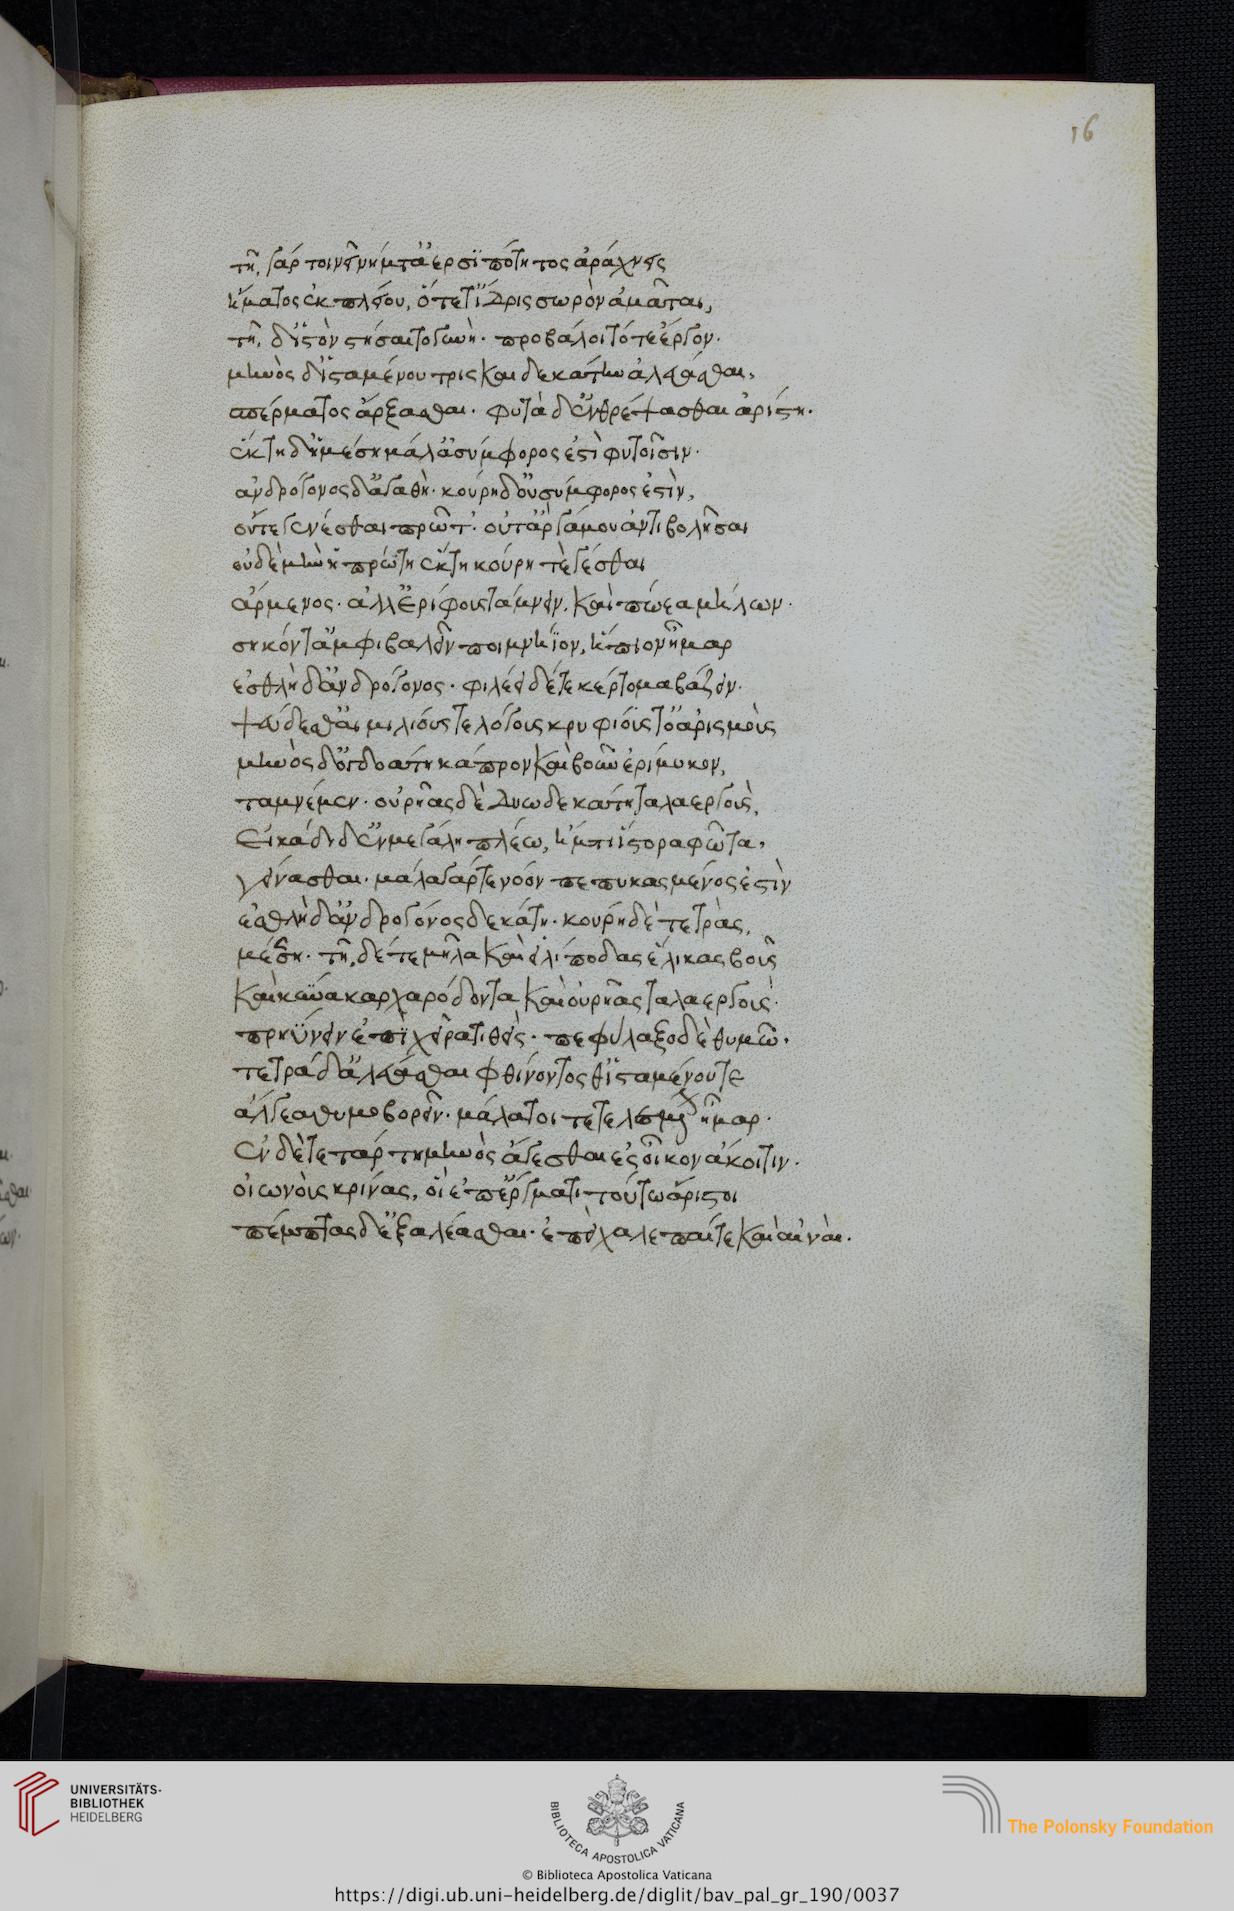 16
τῆ, γάρ τοι νεῖ νήματ' ἀερσιπότητος ἀράχνης
ἤματος ἐκ πλείου, ὅτε τ' ἴδρις σωρὸν ἀμᾶται,
τῆ, δ' ἱστὸν στήσαιτο γυνὴ· προβάλοιτό τε ἔργον.
μηνὸς δ' ἱσταμένου τρὶς καὶ δεκάτην ἀλέασθαι,
σπέρματος ἄρξασθαι· φυτὰ δ' ἐνθρέψασθαι ἀρίστη.
ἕκτη δ' ἡ μέση μάλ' ἀσύμφορος ἐστὶ φυτοῖσιν.
ἀνδρογόνος δ' ἀγαθὴ· κούρη δ' οὐ σύμφορος ἐστὶν,
οὔτε γενέσθαι πρῶτ'· οὔτ' ἂρ γάμου ἀντιβολῆσαι
οὐδὲ μὲν ἡ πρώτη ἕκτη κούρη τὲ γέσθαι
ἄρμενος· ἀλλ' ἐρίφοις τάμνειν, καὶ πώεα μήλων.
σηκόν τ' ἀμφιβαλεῖν ποιμνήϊον, ἤπιον ἦμαρ
ἐσθλὴ δ' ἀνδρογόνος· φιλέει δέ τε κέρτομα βάζειν.
ψεύδεα θ' αἱμυλίους τε λόγους κρυφίους τ' ὀαρισμοὺς
μηνὸς δ' ὀγδοάτη κάπρον καὶ βοῦν ἐρίμυκον,
ταμνέμεν· οὐρῆας δὲ δυωδεκάτη ταλαεργοὺς,
Εἰκάδι δ' ἐν μεγάλη πλέω, ἤματι ἵστορα φῶτα,
γείνασθαι· μάλα γάρ τε νόον πεπυκασμένος ἐστὶν
ἐσθλὴ δ' ἀνδρογόνος δεκάτη· κούρη δὲ τετρὰς,
μέσση· τῆ, δέ τε μῆλα καὶ εἰλίποδας ἕλικας βοῦς
καὶ κύνα καρχαρόδοντα καὶ οὐρῆας ταλαεργοὺς.
πρηΰνειν ἐπὶ χεῖρα τιθεὶς· πεφύλαξο δὲ θυμῶ.
τετράδ' ἀλέασθαι φθίνοντος θ' ἱσταμένου τε
ἄλγεα θυμοβορεῖν· μάλα τοι τετελεσμένον ἦμαρ.
ἐν δὲ τετάρτη μηνὸς ἄγεσθαι ἐς οἶκον ἄκοιτιν.
οἰωνοὺς κρίνας, οἳ ἐπ' ἔργματι τούτω ἄριστοι
πέμπτας δ' ἐξαλέασθαι· ἐπεὶ χαλεπαί τε καὶ αἰναὶ.
UNIVERSITÄTS-
BIBLIOTHEK
HEIDELBERG
BIBLIOTECA APOSTOLICA VATICANA
The Polonsky Foundation
© Biblioteca Apostolica Vaticana
https://digi.ub.uni-heidelberg.de/diglit/bav_pal_gr_190/0037